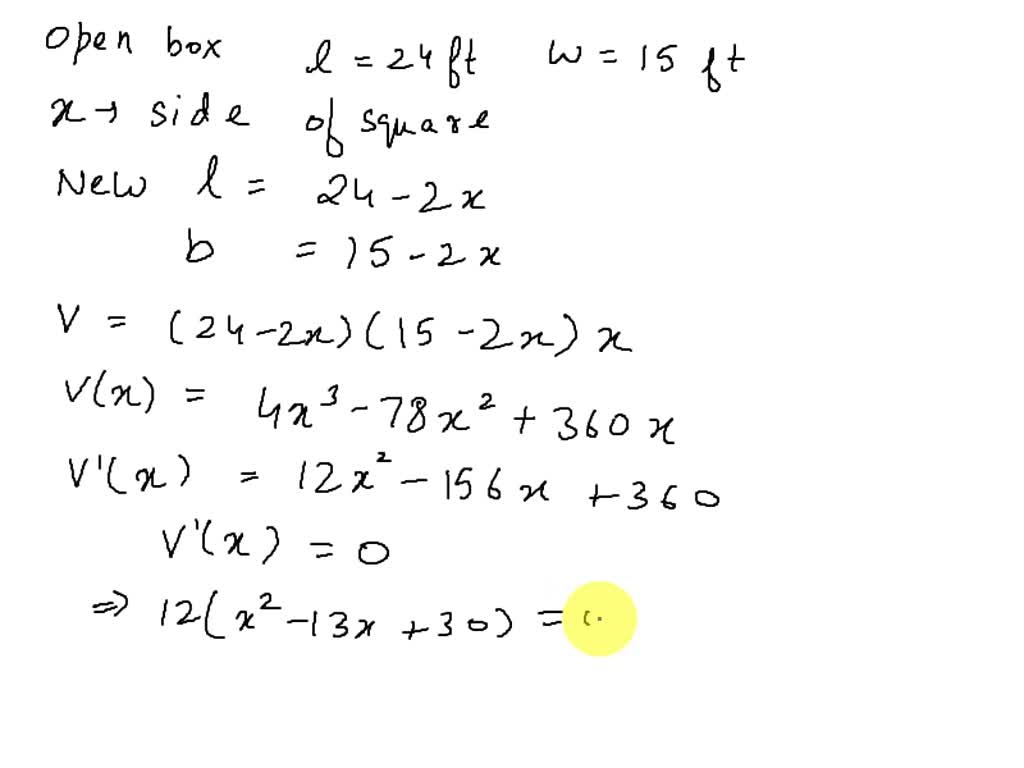 Open box l = 24 ft w = 15 ft
x → side of square
New l = 24 - 2x
b = 15 - 2x
V = (24 - 2x)(15 - 2x) x
V(x) = 4x³ - 78x² + 360x
V'(x) = 12x² - 156x + 360
V'(x) = 0
⇒ 12(x² - 13x + 30) =